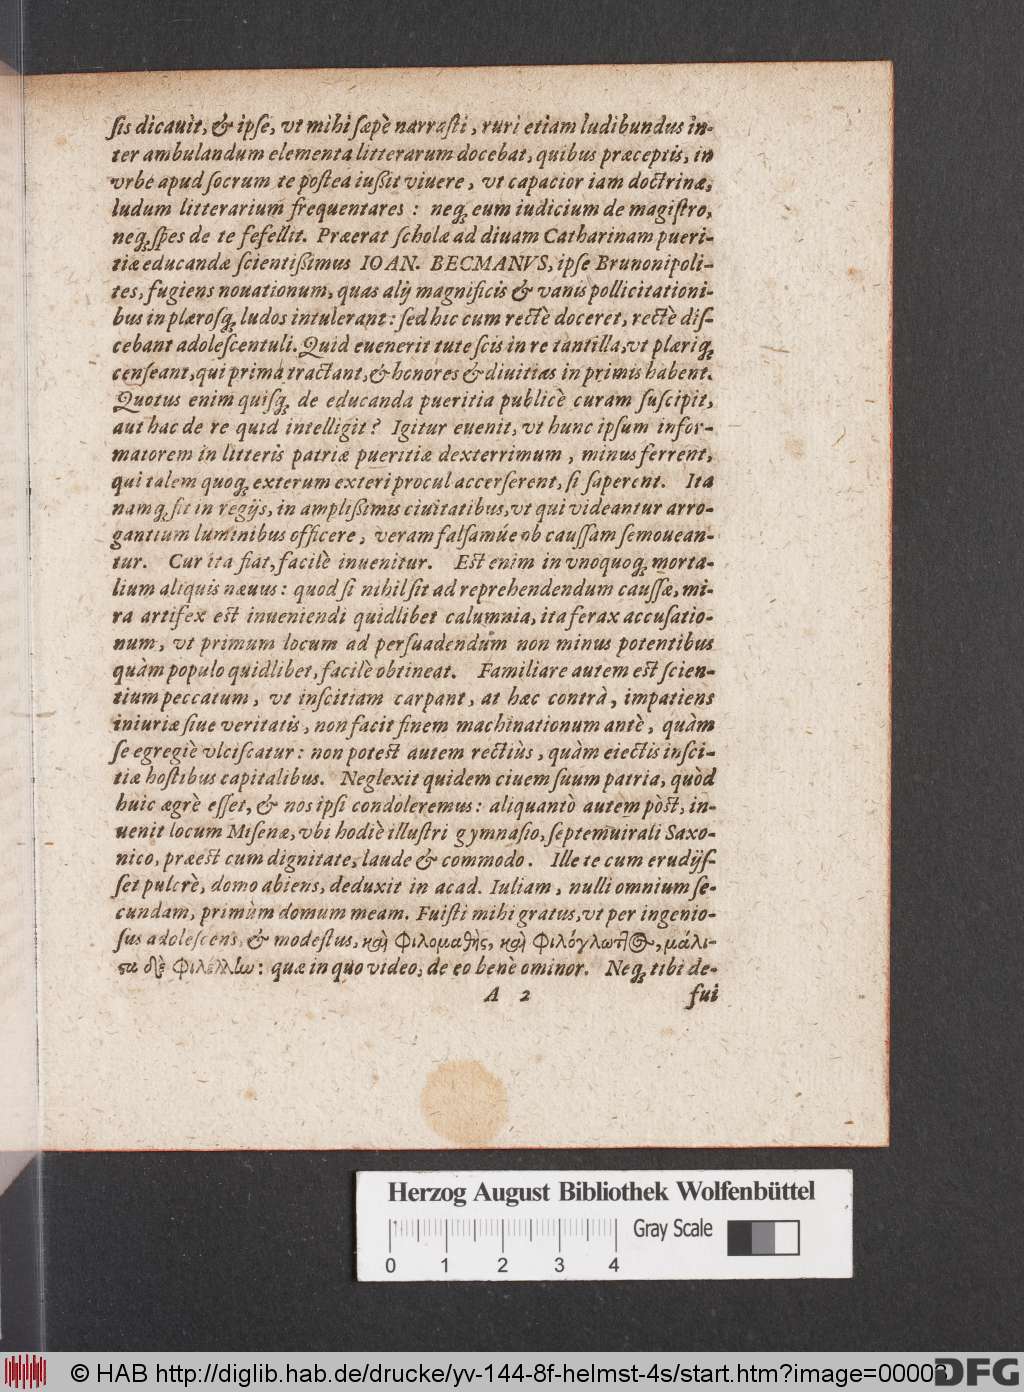 ſis dicauit, & ipſe, vt mihi ſæpè narraſti, ruri etiam ludibundus in-
ter ambulandum elementa litterarum docebat, quibus præceptis, in
vrbe apud ſocrum te poſtea iußit viuere, vt capacior iam doctrinæ,
ludum litterarium frequentares : neq́; eum iudicium de magiſtro,
neq́; ſpes de te fefellit. Præerat ſcholæ ad diuam Catharinam pueri-
tiæ educandæ ſcientißimus IOAN. BECMANVS, ipſe Brunonipoli-
tes, fugiens nouationum, quas alij magnificis & vanis pollicitationi-
bus in plæroſq́; ludos intulerant : ſed hic cum rectè doceret, rectè diſ-
cebant adoleſcentuli. Quid euenerit tute ſcis in re tantilla, vt plæriq́;
cenſeant, qui prima tractant, & honores & diuitias in primis habent.
Quotus enim quiſq́; de educanda pueritia publicè curam ſuſcipit,
aut hac de re quid intelligit? Igitur euenit, vt hunc ipſum infor-
matorem in litteris patriæ pueritiæ dexterrimum, minus ferrent,
qui talem quoq́; exterum exteri procul accerſerent, ſi ſaperent. Ita
namq́; fit in regijs, in amplißimis ciuitatibus, vt qui videantur arro-
gantium luminibus officere, veram falſamúe ob cauſſam ſemouean-
tur. Cur ita fiat, facilè inuenitur. Est enim in vnoquoq́; morta-
lium aliquis næuus : quod ſi nihil ſit ad reprehendendum cauſſæ, mi-
ra artifex est inueniendi quidlibet calumnia, ita ferax accuſatio-
num, vt primum locum ad perſuadendum non minus potentibus
quàm populo quidlibet, facilè obtineat. Familiare autem est ſcien-
tium peccatum, vt inſcitiam carpant, at hæc contrà, impatiens
iniuriæ ſiue veritatis, non facit finem machinationum antè, quàm
ſe egregiè vlciſcatur : non potest autem rectiùs, quàm eiectis inſci-
tiæ hoſtibus capitalibus. Neglexit quidem ciuem ſuum patria, quòd
huic ægrè eſſet, & nos ipſi condoleremus : aliquantò autem pòst, in-
uenit locum Miſenæ, vbi hodiè illuſtri gymnaſio, ſeptemuirali Saxo-
nico, præest cum dignitate, laude & commodo. Ille te cum erudijſ-
ſet pulcrè, domo abiens, deduxit in acad. Iuliam, nulli omnium ſe-
cundam, primùm domum meam. Fuiſti mihi gratus, vt per ingenio-
ſus adoleſcens, & modeſtus, καὶ Φιλομαθὴς, καὶ Φιλόγλωττ@, μάλι-
ϛα δὲ Φιλέλλην : quæ in quo video, de eo benè ominor. Neq́; tibi de-
A 2 fui
Herzog August Bibliothek Wolfenbüttel
Gray Scale
0 1 2 3 4
© HAB http://diglib.hab.de/drucke/yv-144-8f-helmst-4s/start.htm?image=00003
DFG